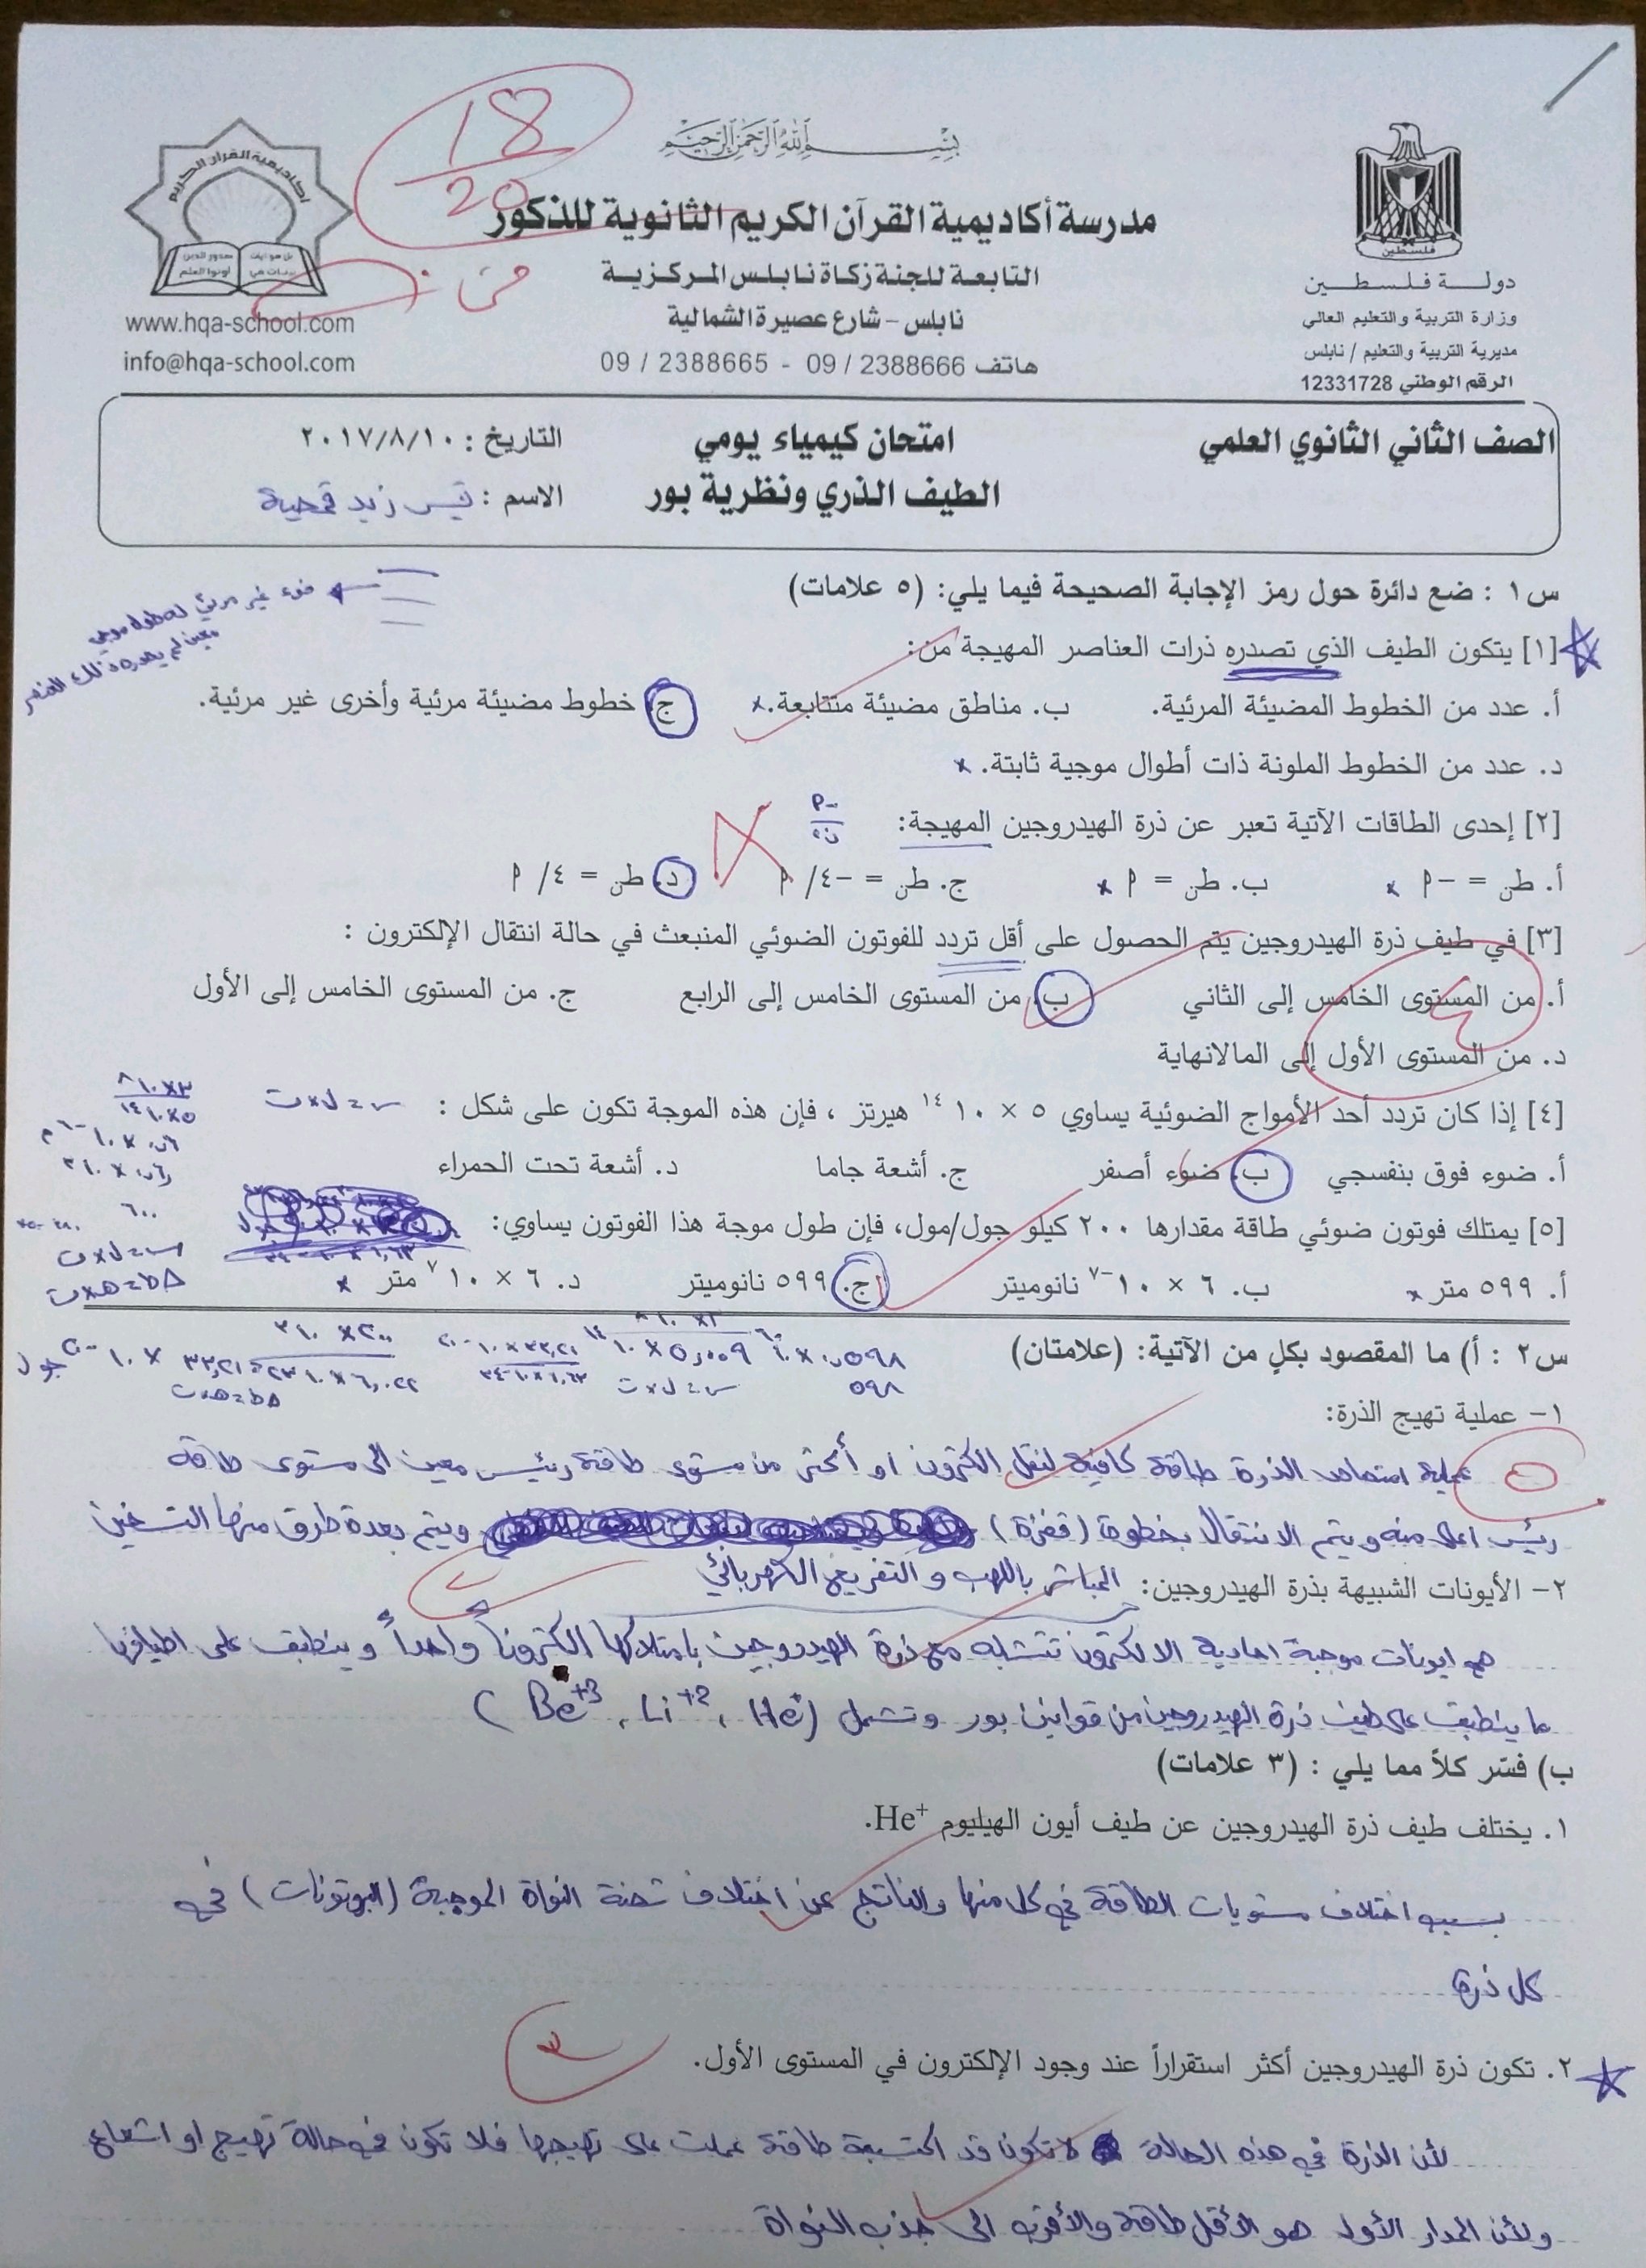 18
20
بسم الله الرحمن الرحيم
مدرسة أكاديمية القرآن الكريم الثانوية للذكور
التابعة للجنة زكاة نابلس المركزية
نابلس - شارع عصيرة الشمالية
هاتف 09 / 2388666 - 09 / 2388665
فلسطين
دولة فلسطين
وزارة التربية والتعليم العالي
مديرية التربية والتعليم / نابلس
الرقم الوطني 12331728
أكاديمية القرآن الكريم
www.hqa-school.com
info@hqa-school.com
الصف الثاني الثانوي العلمي
امتحان كيمياء يومي
التاريخ : ٢٠١٧/٨/١٠
الطيف الذري ونظرية بور
الاسم : قيس زيد قمحية
س١ : ضع دائرة حول رمز الإجابة الصحيحة فيما يلي: (٥ علامات)
ضوء غير مرئي له طول موجي
[١] يتكون الطيف الذي تصدره ذرات العناصر المهيجة من:
أ. عدد من الخطوط المضيئة المرئية. ب. مناطق مضيئة متتابعة. x ج. خطوط مضيئة مرئية وأخرى غير مرئية.
د. عدد من الخطوط الملونة ذات أطوال موجية ثابتة. x
[٢] إحدى الطاقات الآتية تعبر عن ذرة الهيدروجين المهيجة: -أ/ن٢
أ. طن = -أ x ب. طن = أ x ج. طن = -٤/ أ د. طن = ٤/ أ
[٣] في طيف ذرة الهيدروجين يتم الحصول على أقل تردد للفوتون الضوئي المنبعث في حالة انتقال الإلكترون :
أ. من المستوى الخامس إلى الثاني ب. من المستوى الخامس إلى الرابع ج. من المستوى الخامس إلى الأول
د. من المستوى الأول إلى المالانهاية
٤
[٤] إذا كان تردد أحد الأمواج الضوئية يساوي ٥ × ١٠ ١٤ هيرتز ، فإن هذه الموجة تكون على شكل :
س = ل × ت
أ. ضوء فوق بنفسجي ب. ضوء أصفر ج. أشعة جاما د. أشعة تحت الحمراء
٦٠٠
س = ل × ت
Δط = هـ × ت
[٥] يمتلك فوتون ضوئي طاقة مقدارها ٢٠٠ كيلو جول/مول، فإن طول موجة هذا الفوتون يساوي:
أ. ٥٩٩ متر x ب. ٦ × ١٠ ٧- نانوميتر ج. ٥٩٩ نانوميتر د. ٦ × ١٠ ٧ متر x
س = ل × ت
Δط = هـ × ت
٥٩٨
س٢ : أ) ما المقصود بكلٍ من الآتية: (علامتان)
١- عملية تهيج الذرة:
عملية امتصاص الذرة طاقة كافية لنقل الكترون او أكثر من مستوى طاقة رئيس معين الى مستوى طاقة
رئيس اعلى منه ويتم الانتقال بخطوة (قفزة) ويتم بعدة طرق منها التسخين
المباشر باللهب والتفريغ الكهربائي
٢- الأيونات الشبيهة بذرة الهيدروجين:
هي ايونات موجبة احادية الالكترون تتشابه مع ذرة الهيدروجين بامتلاكها الكتروناً واحداً وينطبق على اطيافها
ما ينطبق على طيف ذرة الهيدروجين من قوانين بور وتشمل (He+ ، Li+2 ، Be+3)
ب) فسّر كلاً مما يلي : (٣ علامات)
١. يختلف طيف ذرة الهيدروجين عن طيف أيون الهيليوم He+.
بسبب اختلاف مستويات الطاقة في كل منها والناتج عن اختلاف شحنة النواة الموجبة (البروتونات) في
كل ذرة
٣
٢. تكون ذرة الهيدروجين أكثر استقراراً عند وجود الإلكترون في المستوى الأول.
لأن الذرة في هذه الحالة لا تكون قد اكتسبت طاقة عملت على تهيجها فلا تكون في حالة تهيج او اشعاع
ولأن المدار الأول هو الأقل طاقة والأقرب الى جذب النواة